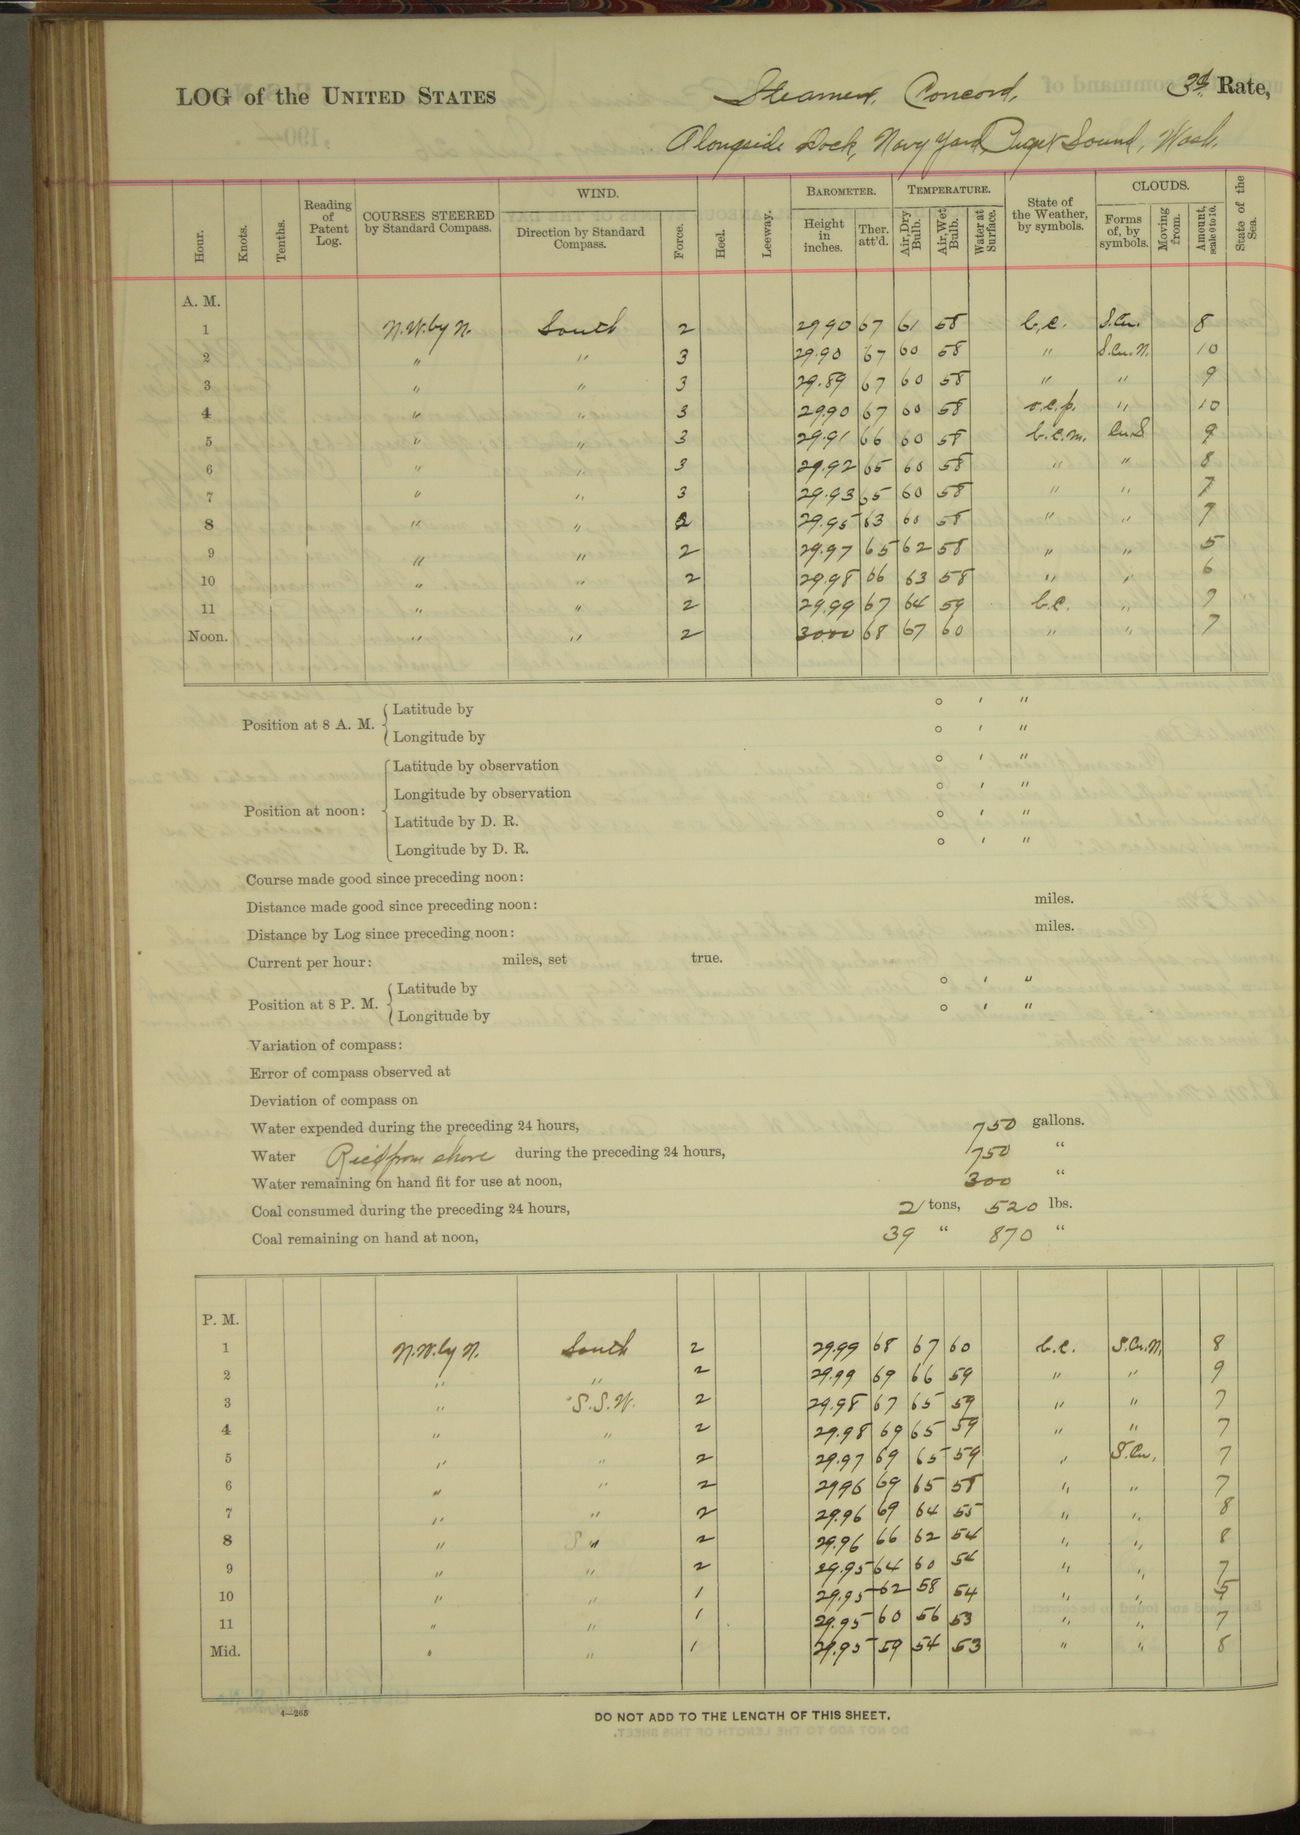 LOG of the UNITED STATES Steamer, Concord, 3d Rate,
Alongside Dock, Navy Yard, Puget Sound, Wash.
Hour. Knots. Tenths. Reading of Patent Log. COURSES STEERED by Standard Compass. WIND. Direction by Standard Compass. Force. Heel. Leeway. BAROMETER. Height in inches. Ther. att'd. TEMPERATURE. Air, Dry Bulb. Air, Wet Bulb. Water at Surface. State of the Weather, by symbols. CLOUDS. Forms of, by symbols. Moving from. Amount, scale 0 to 10. State of the Sea.
A. M.
1 N.W. by N. South 2 29.90 67 61 58 b.c. S.Cu. 8
2 " " 3 29.90 67 60 58 " S.Cu.N. 10
3 " " 3 29.89 67 60 58 " " 9
4 " " 3 29.90 67 60 58 o.c.p. " 10
5 " " 3 29.91 66 60 58 b.c.m. Cu.S 9
6 " " 3 29.92 65 60 58 " " 8
7 " " 3 29.93 65 60 58 " " 7
8 " " 2 29.95 63 60 58 " " 7
9 " " 2 29.97 65 62 58 " " 5
10 " " 2 29.98 66 63 58 " " 6
11 " " 2 29.99 67 64 59 b.c. " 7
Noon. " " 2 3000 68 67 60 " " 7
Position at 8 A. M. { Latitude by ° ' "
Longitude by ° ' "
Position at noon: { Latitude by observation ° ' "
Longitude by observation ° ' "
Latitude by D. R. ° ' "
Longitude by D. R. ° ' "
Course made good since preceding noon:
Distance made good since preceding noon: miles.
Distance by Log since preceding noon: miles.
Current per hour: miles, set true.
Position at 8 P. M. { Latitude by ° ' "
Longitude by ° ' "
Variation of compass:
Error of compass observed at
Deviation of compass on
Water expended during the preceding 24 hours, 750 gallons.
Water Recd from shore during the preceding 24 hours, 750 "
Water remaining on hand fit for use at noon, 300 "
Coal consumed during the preceding 24 hours, 2 tons, 520 lbs.
Coal remaining on hand at noon, 39 " 870 "
P. M.
1 N.W. by N. South 2 29.99 68 67 60 b.c. S.Cu.N. 8
2 " " 2 29.99 69 66 59 " " 9
3 " S.S.W. 2 29.98 67 65 59 " " 7
4 " " 2 29.98 69 65 59 " " 7
5 " " 2 29.97 69 65 59 " S.Cu. 7
6 " " 2 2996 69 65 58 " " 7
7 " " 2 29.96 69 64 55 " " 8
8 " " 2 29.96 66 62 54 " " 8
9 " " 2 29.95 64 60 54 " " 7
10 " " 1 29.95 62 58 54 " " 5
11 " " 1 29.95 60 56 53 " " 7
Mid. " " 1 29.95 59 54 53 " " 8
4—265
DO NOT ADD TO THE LENGTH OF THIS SHEET.